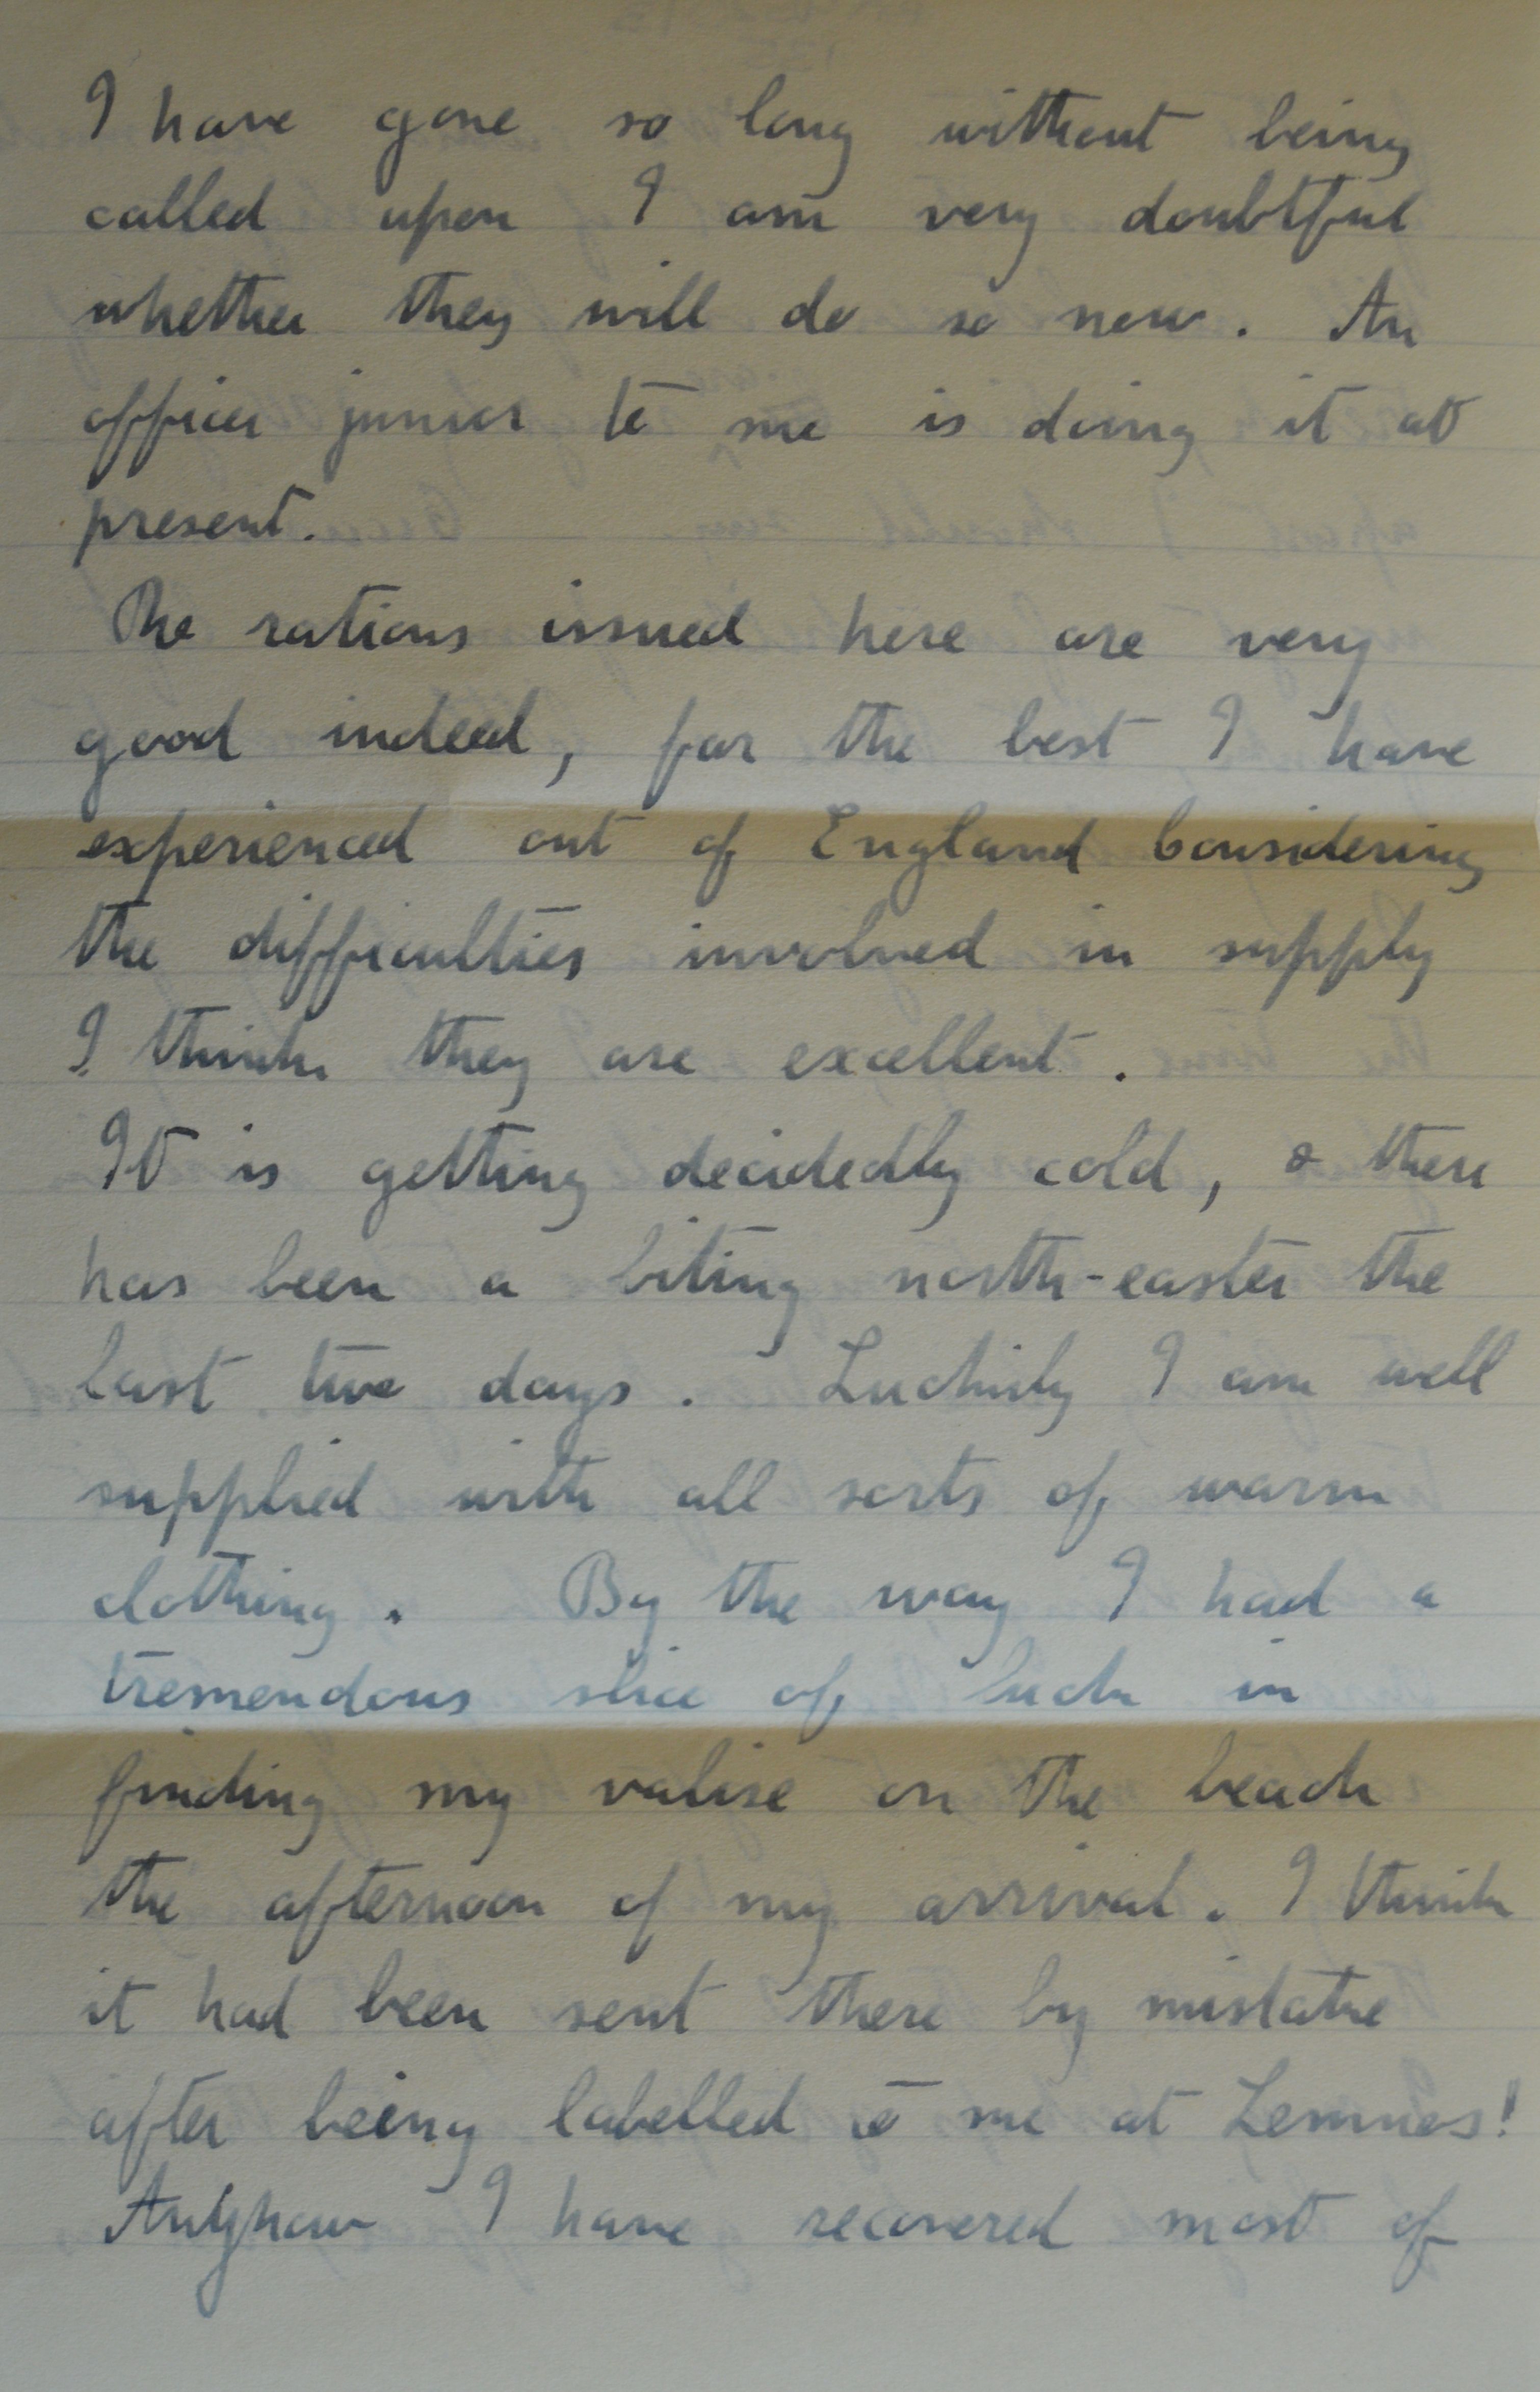 I have gone so long without being
called upon I am very doubtful
whether they will do so now. An
officer junior to me is doing it at
present.
The rations issued here are very
good indeed, far the best I have
experienced out of England Considering
the difficulties involved in supply
I think they are excellent.
It is getting decidedly cold, & there
has been a biting north-easter the
last two days. Luckily I am well
supplied with all sorts of warm
clothing. By the way I had a
tremendous slice of luck in
finding my valise on the beach
the afternoon of my arrival. I think
it had been sent there by mistake
after being labelled to me at Lemnos!
Anyhow I have recovered most of